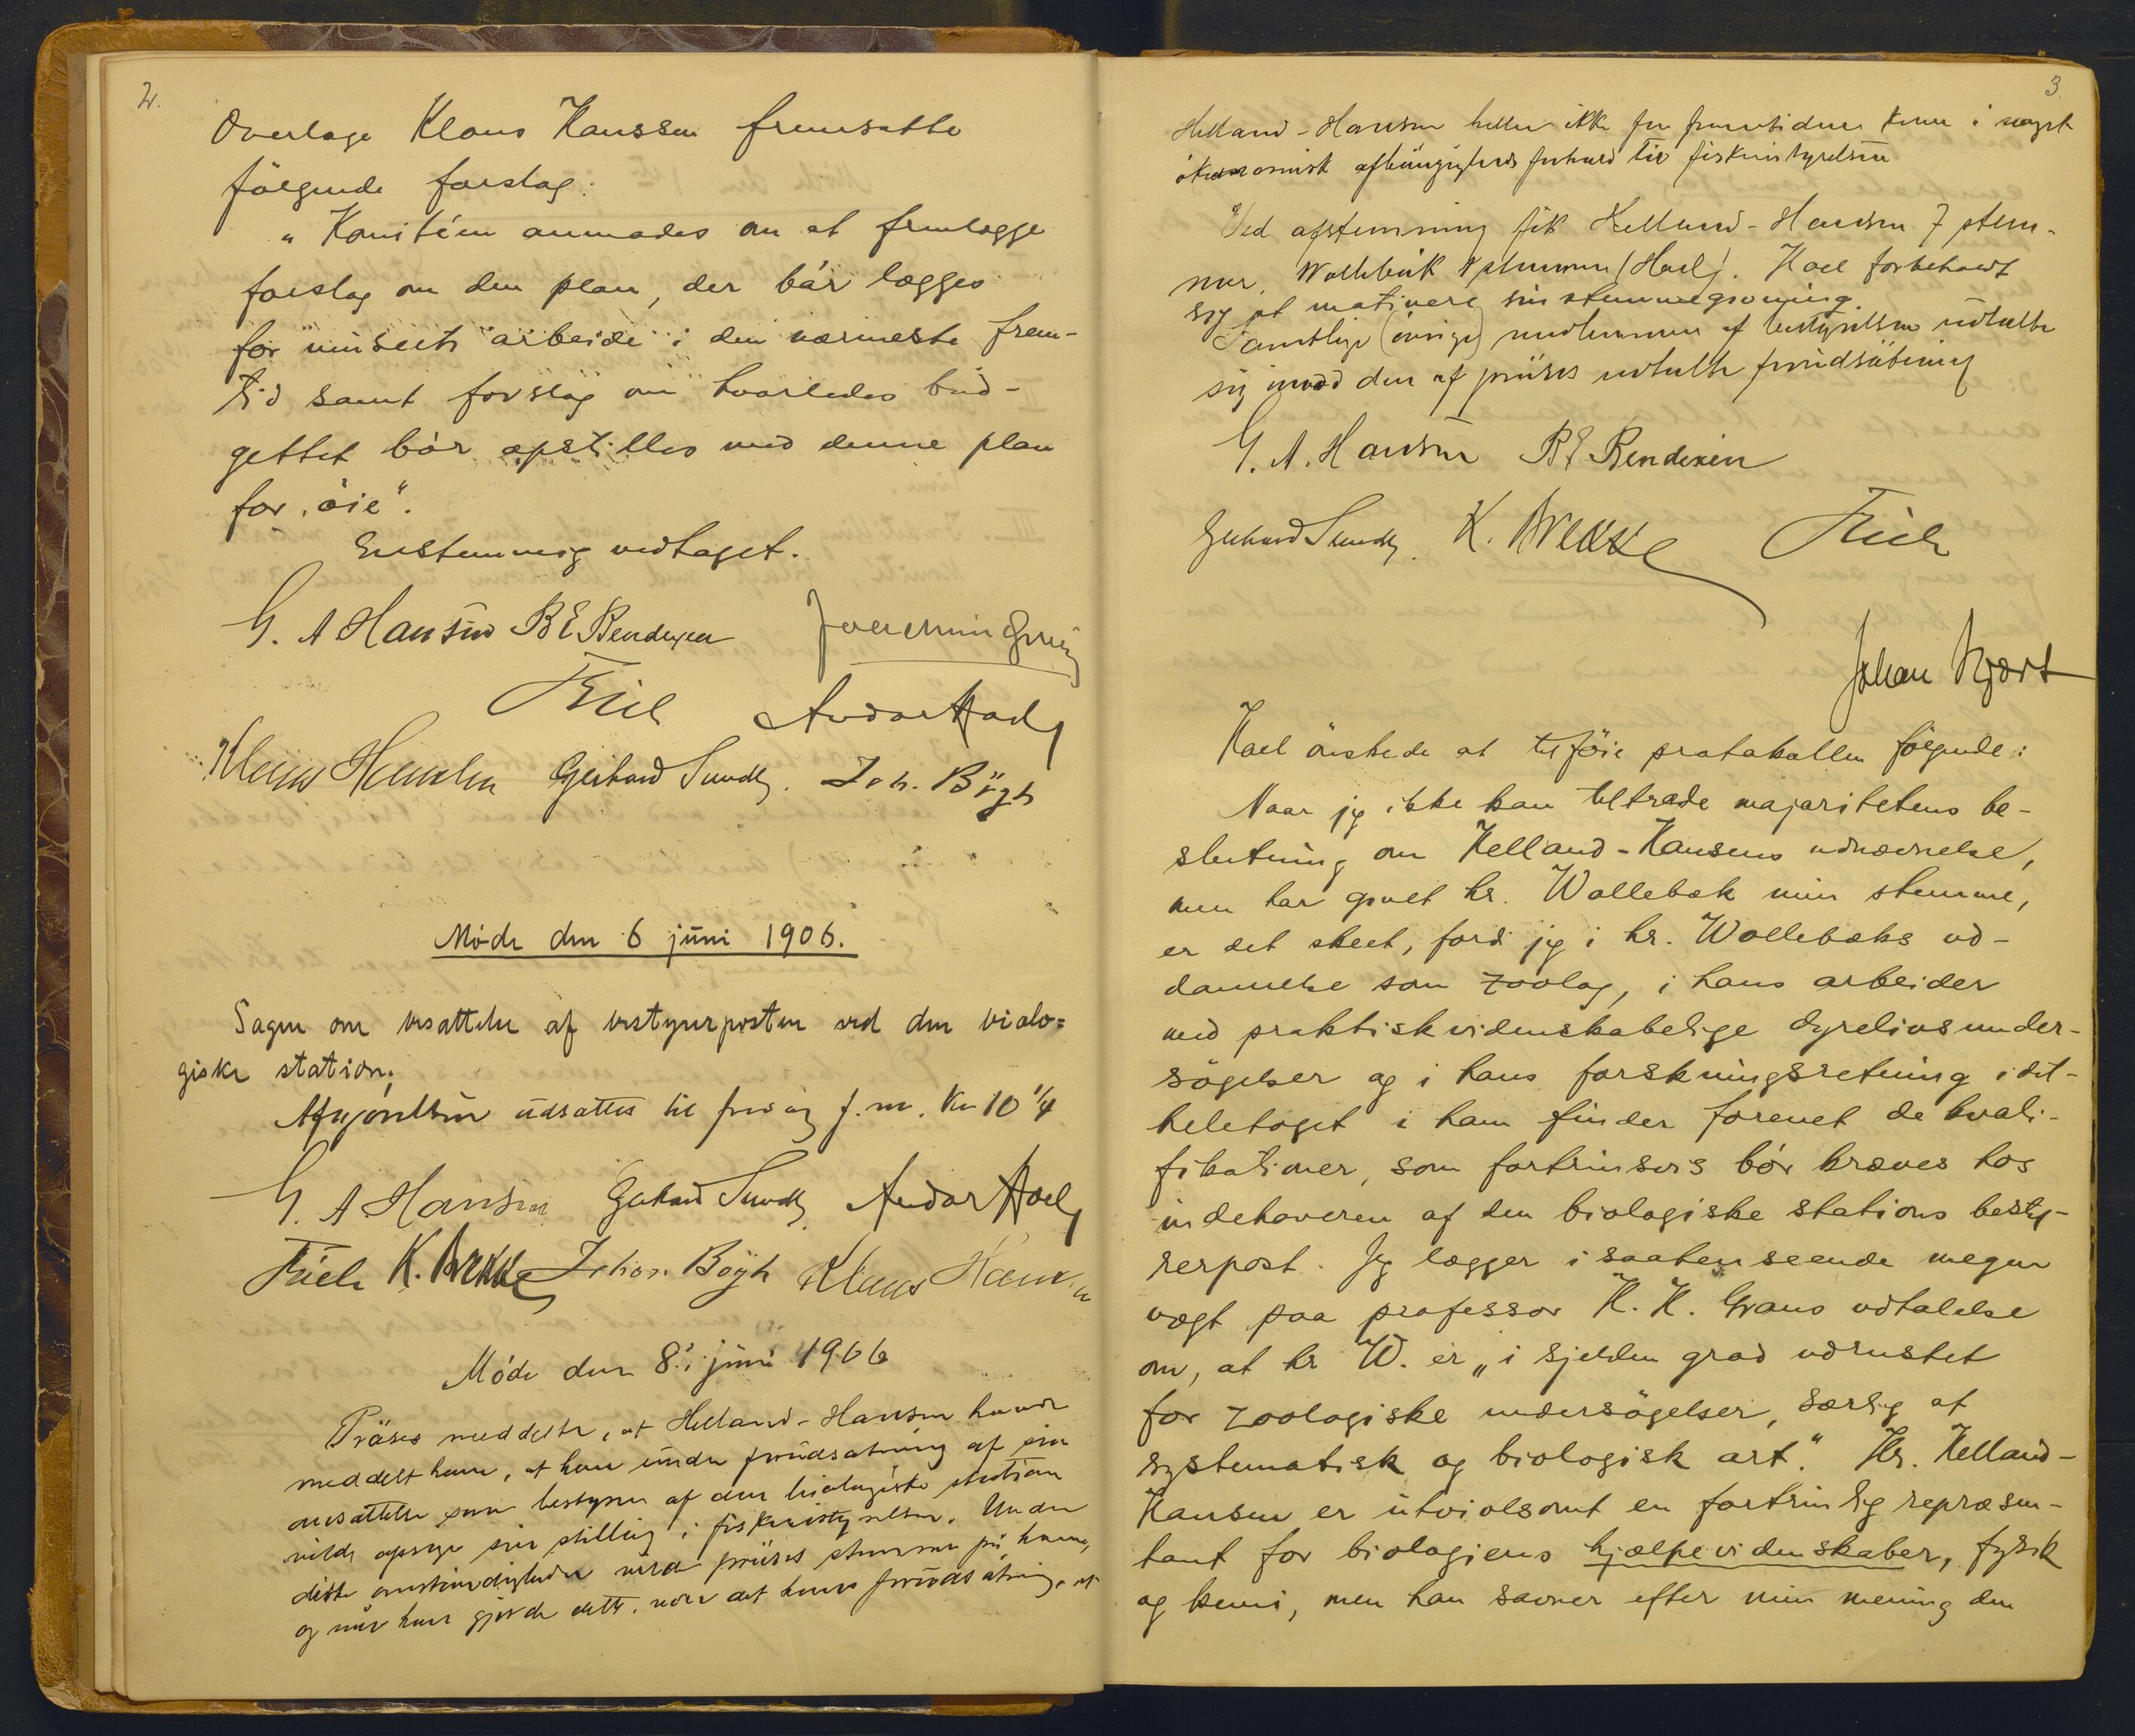 2.
Overlæge Klaus Hanssen fremsatte
følgende forslag:
"Komitéen anmodes om at fremlægge
forslag om den plan, der bør lægges
for museets arbeide i den nærmeste frem-
tid samt forslag om hvorledes bud-
gettet bør opstilles med denne plan
for øie".
Enstemmig vedtaget.
G. A Hansen B E Bendixen Joachim Grieg
Friele Andor Hoel
Klaus Hanssen Gerhard Sundt. Joh. Bøgh
Møde den 6 juni 1906.
Sagen om besættelse af bestyrerposten ved den biolo=
giske station.
Afgjørelsen udsattes til fredag f.m. kl 10 1/4
G. A Hansen Gerhard Sundt. Andor Hoel
Friele K. Brekke Johan Bøgh Klaus Hanssen
Møde den 8de juni 1906
Präses meddelte, at Helland-Hansen havde
meddelt ham, at han under forudsætning af sin
ansættelse som bestyrer af den biologiske station
vilde opsige sin stilling i fiskeristyrelsen. Under
disse omstændigheder vilde präses stemme på ham,
og når han gjorde dette, var det hans forudsætning, at
3.
Helland-Hansen heller ikke for fremtiden kom i noget
økonomisk afhængigheds forhold til fiskeristyrelsen
Ved afstemning fik Helland-Hansen 7 stem-
mer, Wollebæk 1 stemme (Hoel). Hoel forbeholdt
sig at motivere sin stemmegivning.
Samtlige (øvrige) medlemmer af bestyrelsen udtalte
sig imod den af präses udtalte forudsätning
G. A. Hansen B E Bendixen
Gerhard Sundt. K. Brekke Friele
Johan Hjort
Hoel ønskede at tilføie protokollen følgende:
Naar jeg ikke kan tiltræde majoritetens be-
slutning om Helland-Hansens udnævnelse,
men har givet hr. Wollebæk min stemme,
er det skeet, fordi jeg i hr. Wollebæks ud-
dannelse som zoolog, i hans arbeider
med praktiskvidenskabelige dyrelivsunder-
søgelser og i hans forskningsretning i det-
heletaget i ham finder forenet de kvali-
fikationer, som fortrinsvis bør kræves hos
indehaveren af den biologiske stations besty-
rerpost. Jeg lægger i saa henseende megen
vægt paa professor H. H. Grans udtalelse
om, at hr W. er "i sjelden grad udrustet
for zoologiske undersøgelser, særlig af
systematisk og biologisk art." Hr. Helland-
Hansen er utvivlsomt en fortrinlig repræsen-
tant for biologiens hjælpevidenskaber, fysik
og kemi, men han savner efter min mening den